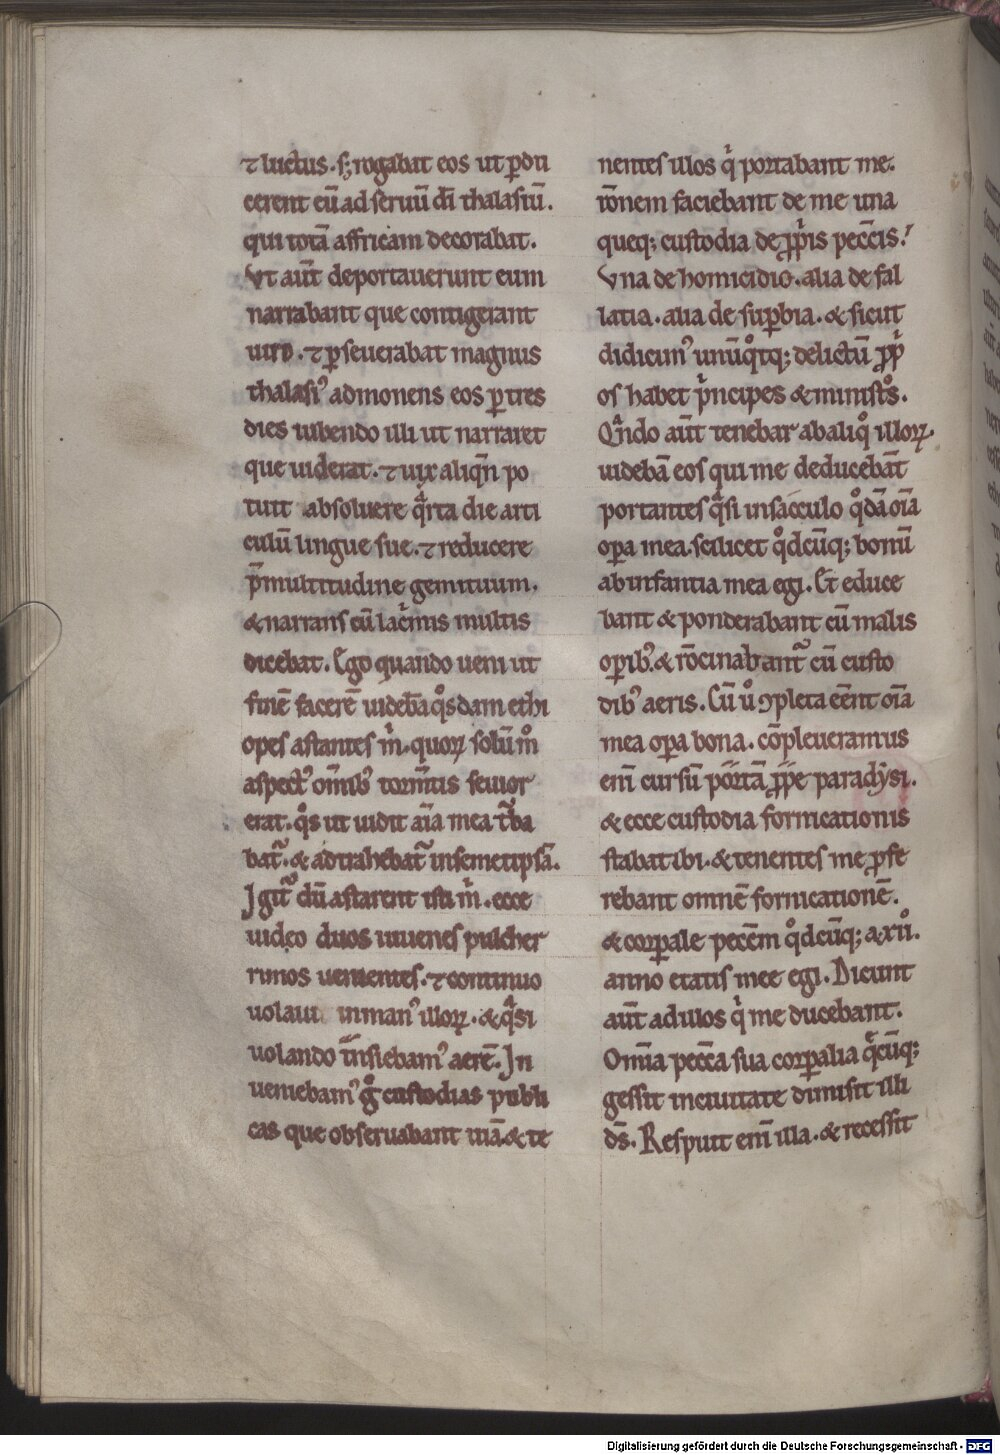 ⁊ luctus. sꝫ rogabat eos ut ꝑdu
cerent eū ad seruū dī thalasiū.
qui totā affricam decorabat.
Vt aut̄ deportauerunt eum
narrabant que contigerant
uiro. ⁊ ꝑseuerabat magnus
thalasiꝰ admonens eos ꝑ tres
dies iubendo illi ut narraret
que uiderat. ⁊ uix aliqn̄ po
tuit absoluere qͣrta die arti
culū lingue sue. ⁊ reducere
p̄ multitudine gemituum.
& narrans cū lac̍mis multis
dicebat. Ego quando ueni ut
finē facerē uidebā qͦsdam ethi
opes astantes m̍. quoꝝ solūmͦ
aspectꝰ om̄ibꝰ torm̄tis seuior
erat. qͦs ut uidit aīa mea tͬba
batͬ. & adtrahebatͬ in semetipsā.
Igitͬ dū astarent isti m̍. ecce
uideo duos iuuenes pulcher
rimos uenientes. ⁊ continuo
uolaui in manꝰ illoꝝ. & qͣsi
uolando tͣnsiebamꝰ aerē. In
ueniebamꝰ gͦ custodias publi
cas que obseruabant uiā & te
nentes illos q̍ portabant me.
rōnem faciebant de me una
queqꝫ custodia de ꝓp̍is pecc̄is.
Vna de homicidio. alia de fal
latia. alia de suꝑbia. & sicut
didicimꝰ unūqͦtqꝫ delictū ꝓp̍
os habet p̍ncipes & ministͦs.
Qͣndo aut̄ tenebar ab aliqͦ illoꝝ.
uidebā eos qui me deducebāt
portantes qͣsi in sacculo qͦdā oīa
oꝑa mea. scilicet qͦdcūqꝫ bonū
ab infantia mea egi. Et educe
bant & ponderabant cū malis
oꝑibꝰ. & rōcinabantͬ cū custo
dibꝰ aeris. Cū uͦ ꝯpleta eēnt oīa
mea oꝑa bona. cōpleueramus
enī cursū portā ꝓpe paradẏsi.
& ecce custodia fornicationis
stabat ibi. & tenentes me ꝓfe
rebant omnē fornicationē.
& corꝑale pecc̄m qͦdcūqꝫ a xuͦ.
anno etatis mee egi. Dicunt
aut̄ ad illos q̍ me ducebant.
Om̄ia pecc̄a sua corꝑalia qͣcūqꝫ
gessit in ciuitate dimisit illi
ds̄. Respuit enī illa. & recessit
Digitalisierung gefördert durch die Deutsche Forschungsgemeinschaft - DFG